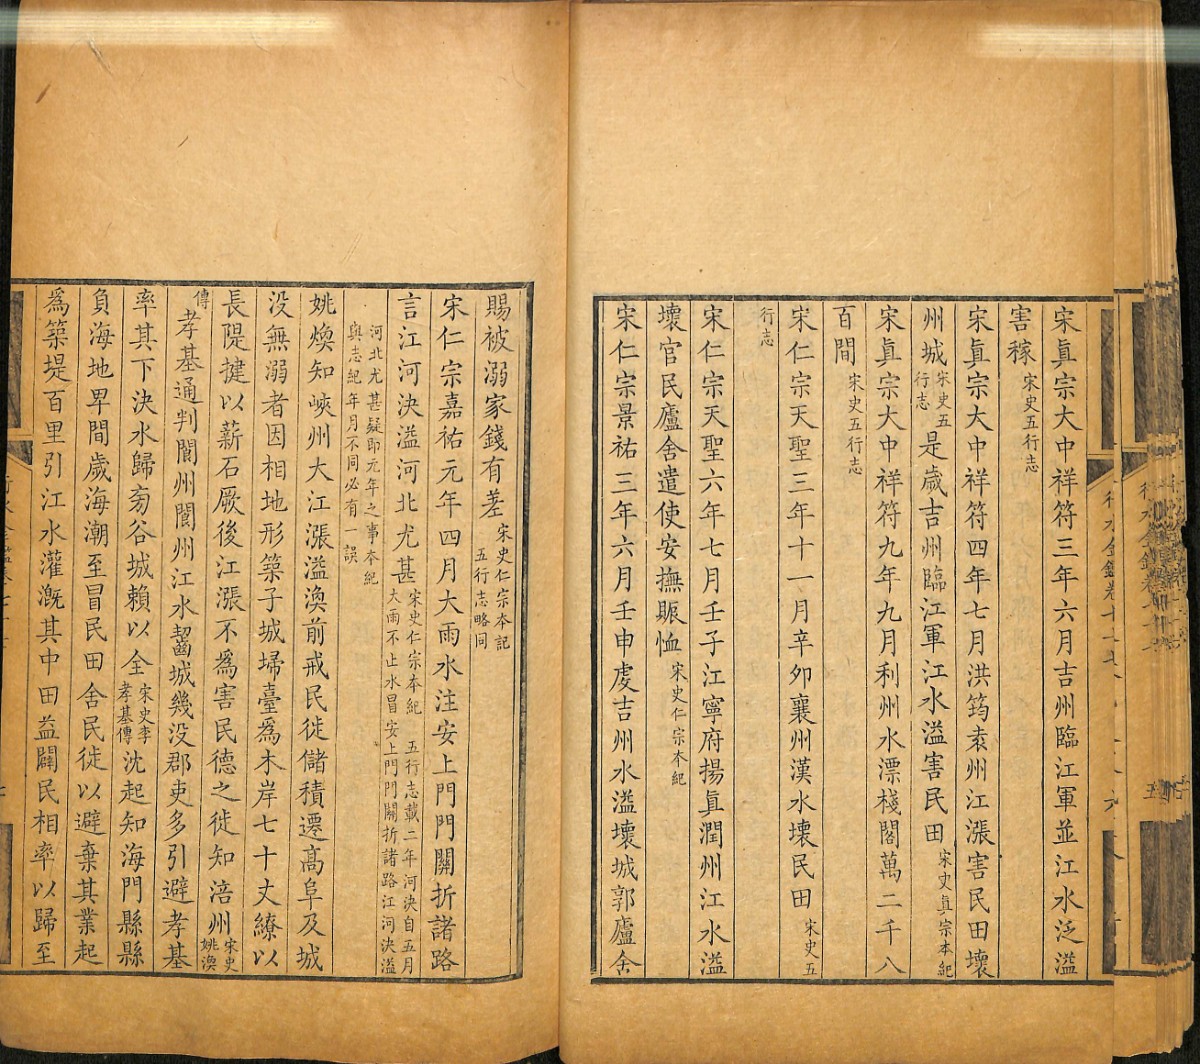 宋眞宗大中祥符三年六月吉州臨江軍並江水泛溢
害稼宋史五行志
宋眞宗大中祥符四年七月洪筠袁州江漲害民田壞
州城宋史五行志是歲吉州臨江軍江水溢害民田宋史眞宗本紀
宋眞宗大中祥符九年九月利州水漂棧閣萬二千八
百間宋史五行志
宋仁宗天聖三年十一月辛卯襄州漢水壞民田宋史五
行志
宋仁宗天聖六年七月壬子江寧府揚眞潤州江水溢
壞官民廬舍遣使安撫賑恤宋史仁宗本紀
宋仁宗景祐三年六月壬申虔吉州水溢壞城郭廬舍
賜被溺家錢有差宋史仁宗本記五行志略同
宋仁宗嘉祐元年四月大雨水注安上門門關折諸路
言江河決溢河北尤甚宋史仁宗本紀 五行志載二年河決自五月大雨不止水冒安上門門關折諸路江河決溢
河北尤甚疑即元年之事本紀與志紀年月不同必有一誤
姚煥知峽州大江漲溢渙前戒民徙儲積遷高阜及城
没無溺者因相地形築子城埽臺爲木岸七十丈繚以
長隄揵以薪石厥後江漲不爲害民德之徙知涪州宋史姚渙
傳孝基通判閬州閬州江水齧城幾没郡吏多引避孝基
率其下決水歸旁谷城賴以全宋史李孝基傳沈起知海門縣縣
負海地卑間歲海潮至冒民田舍民徙以避棄其業起
爲築堤百里引江水灌漑其中田益闢民相率以歸至